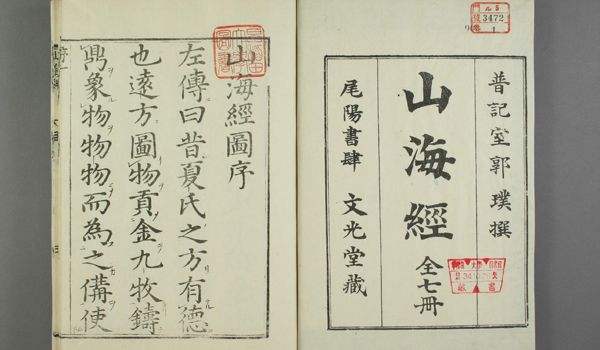 晋記室郭璞撰
山海經 全七冊
尾陽書肆 文光堂藏
ル5
3472
1
山海經圖序
左傳曰昔夏氏之方有德
也遠方圖物貢金九牧鑄
鼎象物物物而為之備使
序一